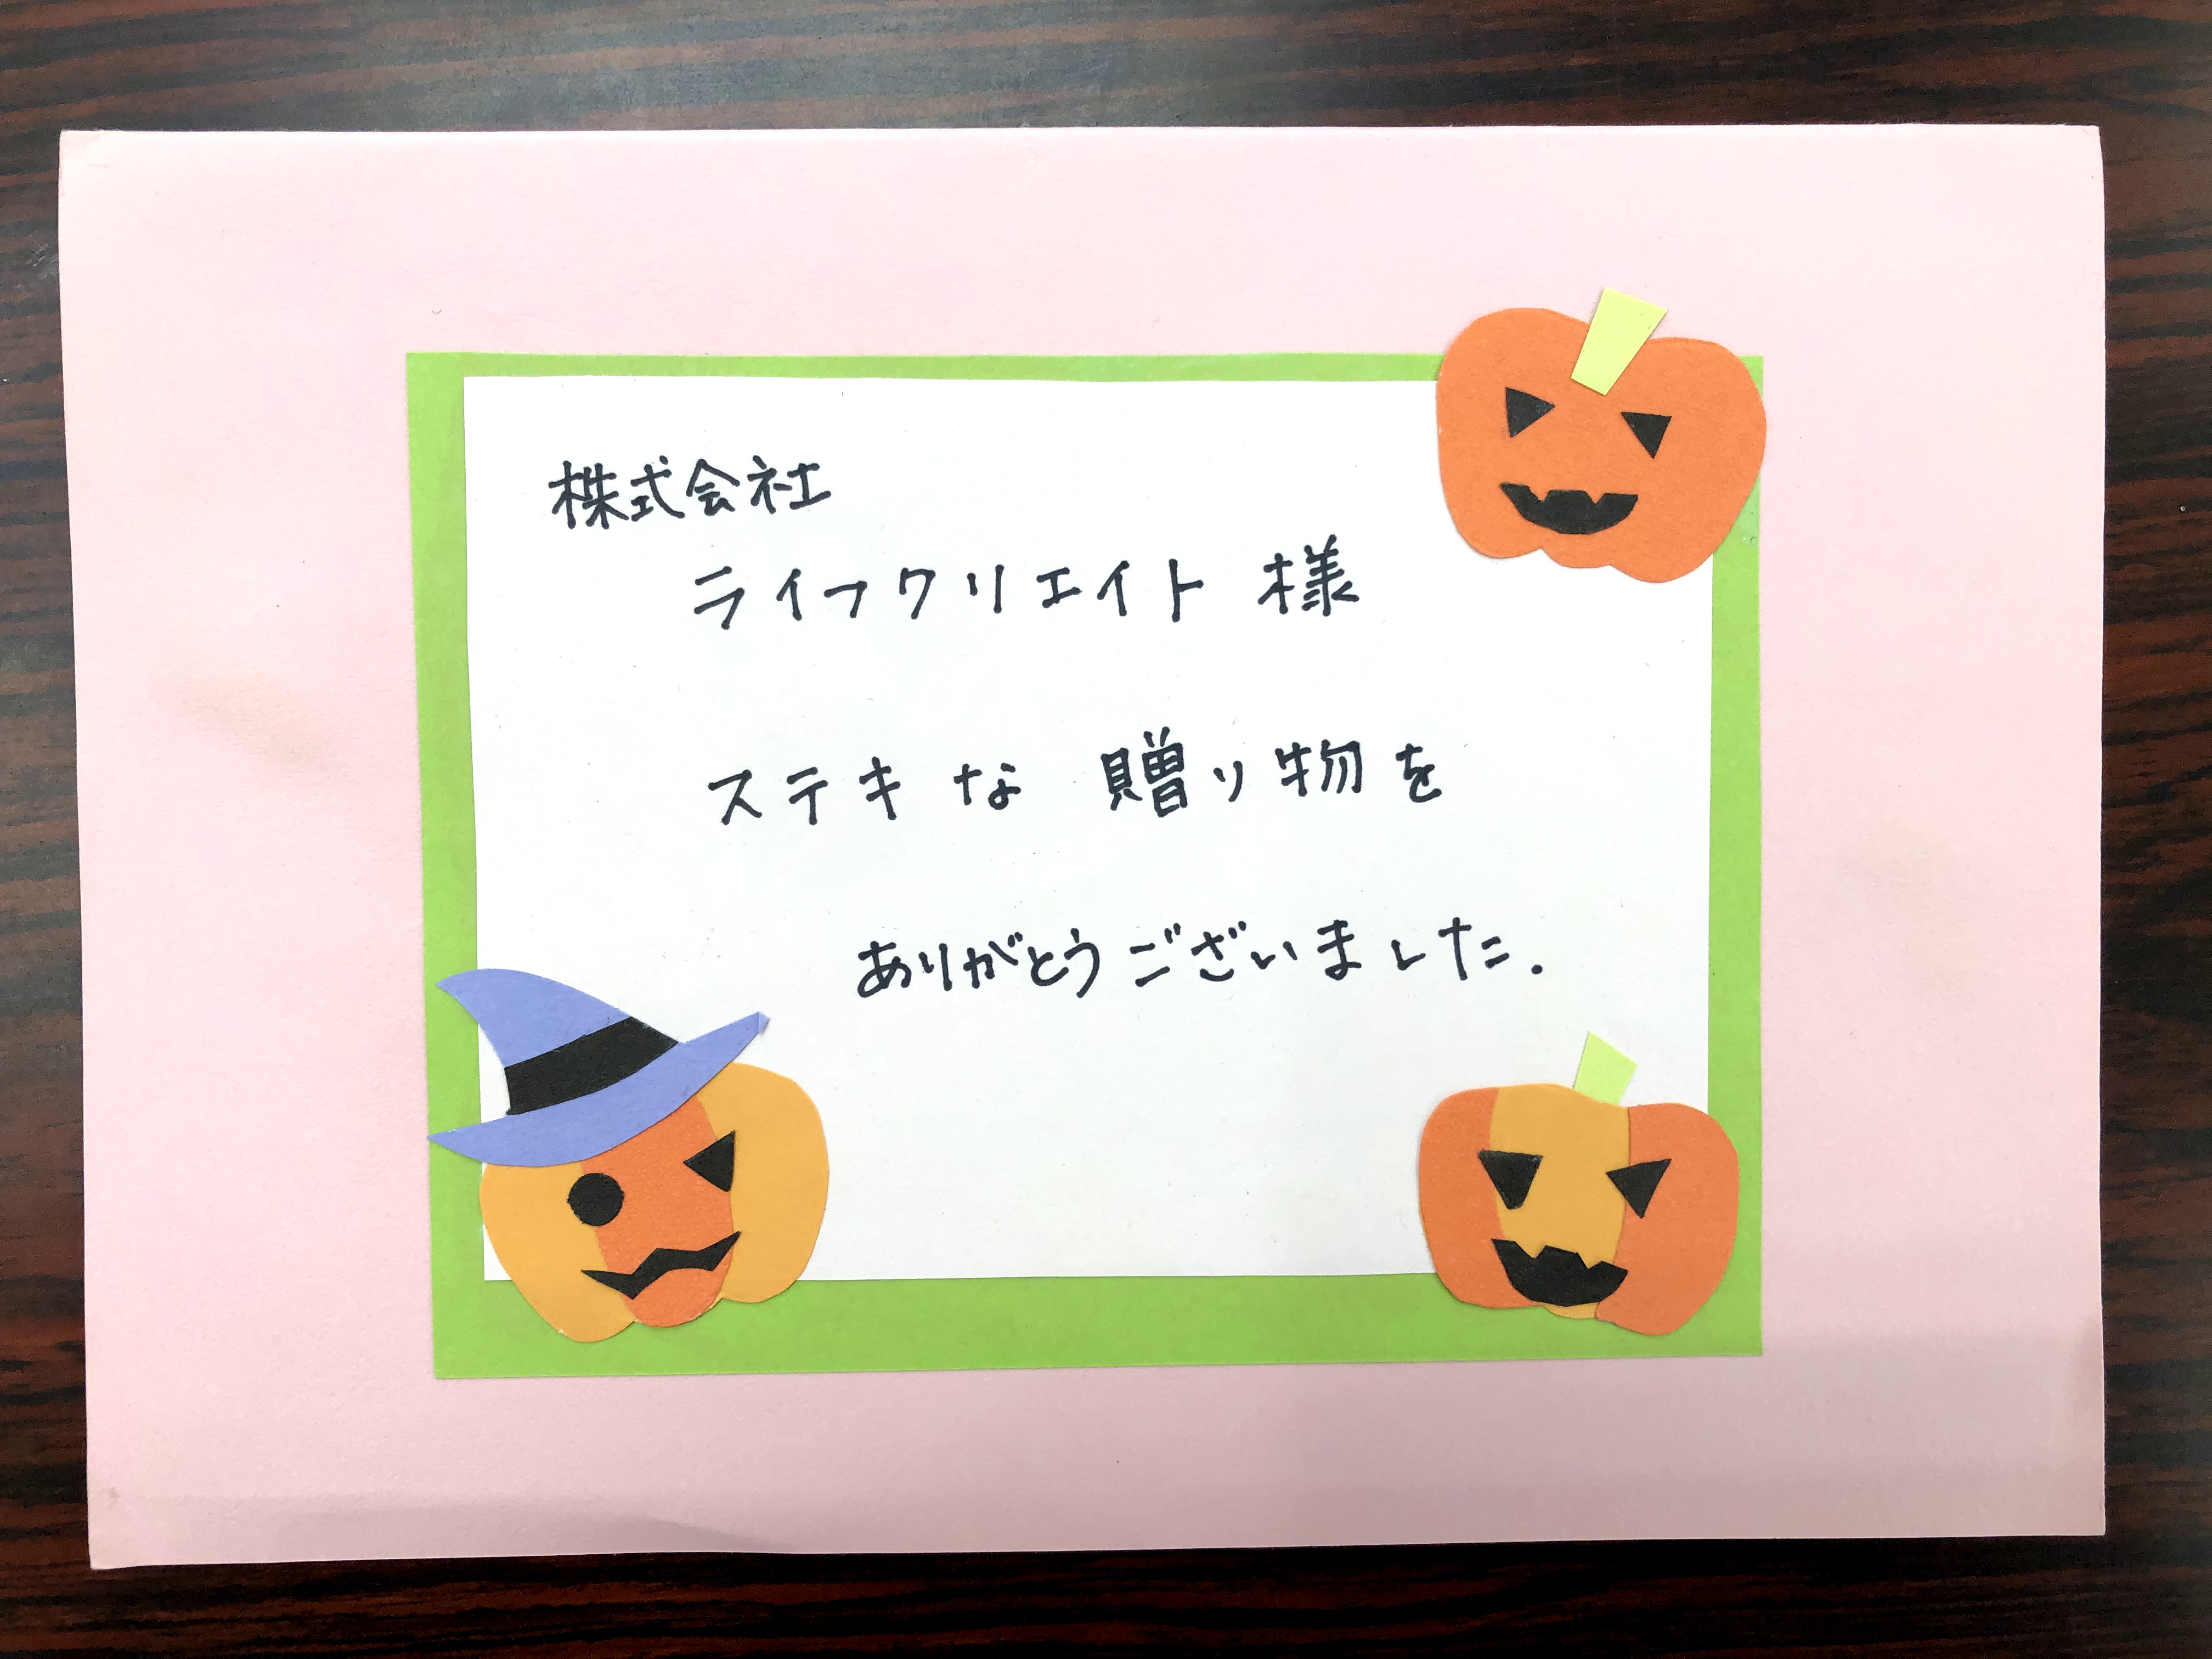 株式会社
ライフクリエイト 様
ステキな 贈り物を
ありがとうございました.